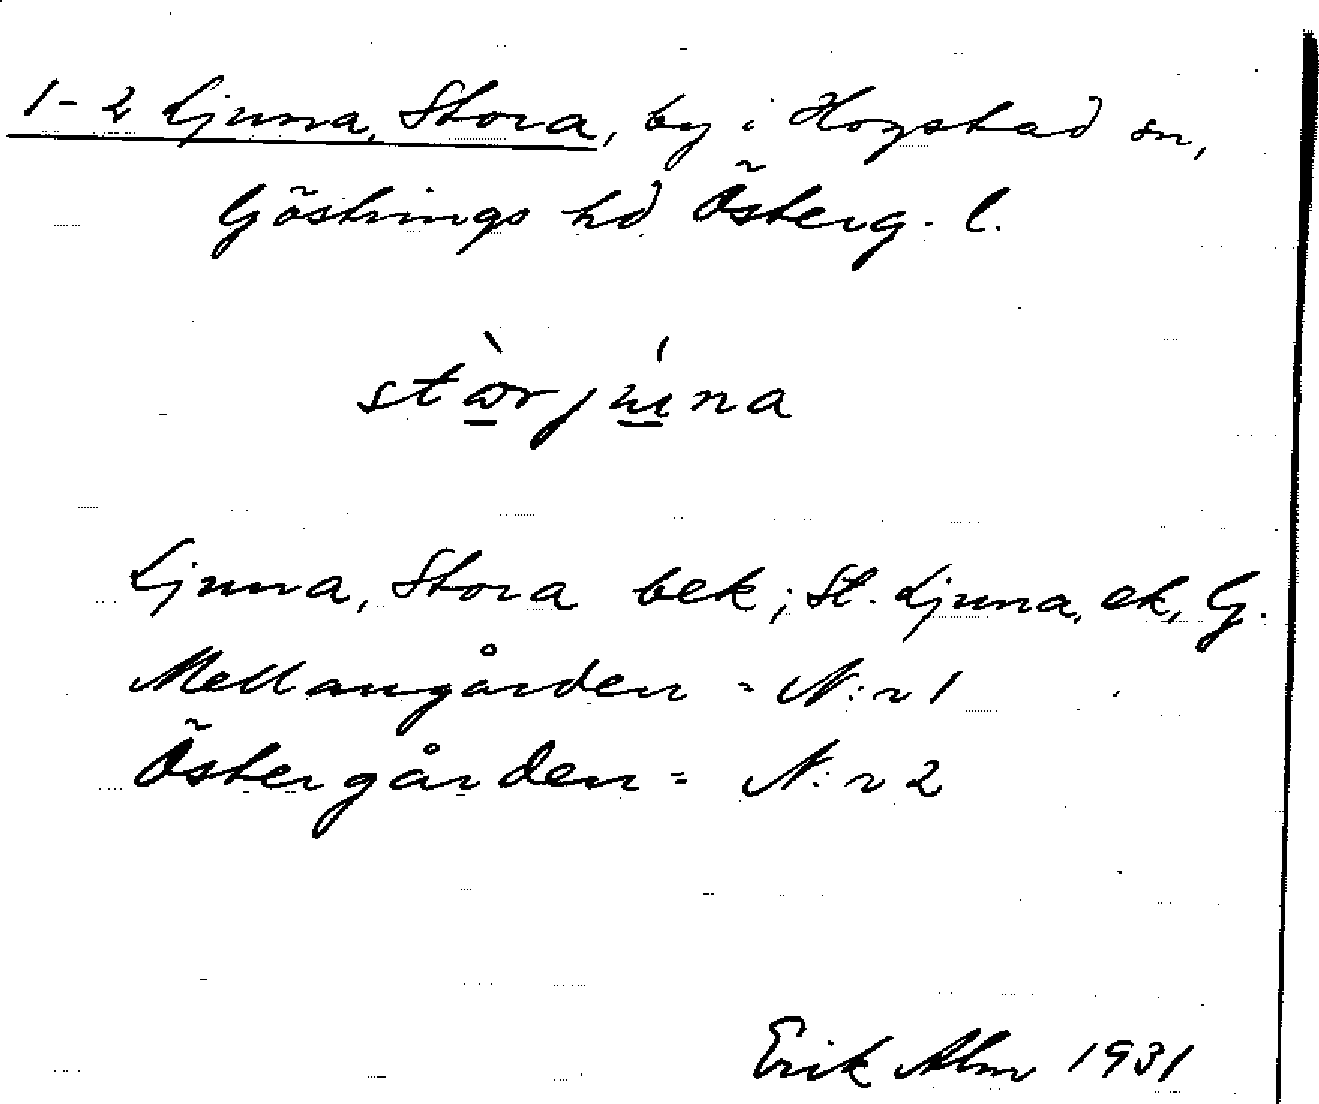 1-2 Ljuna, Stora, by i Hogstad sn,
Göstrings hd Österg. l.
Ljuna, Stora bek; St. Ljuna, ek, G.
Mellangården = N:r 1
Östergården = N:r 2
Erik Alm 1931